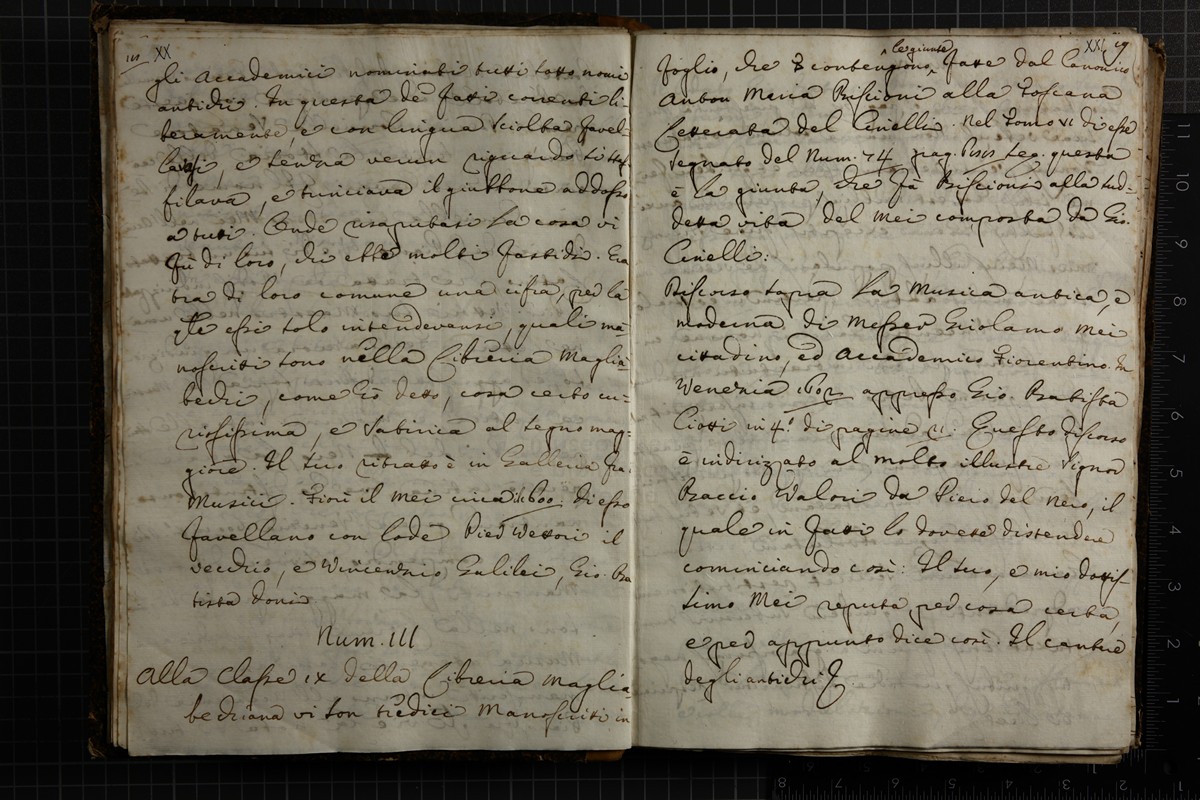 XX
gli Accademici nominati tutti sotto nomi
antichi. In questa de fatti correnti li=
beramente, e con lingua sciolta favel=
lasi, e senza verun riguardo si staf=
filava, e tuniciava il giubbone addosso
a tutti. Onde risaputasi la cosa vi
fu di loro, chi ebbe molti fastidi. Era
tra di loro comune una cifra, per la
qle essi solo intendevensi, quali ma
noscritti sono nella Libreria Maglia=
bechi, come hò detto, cosa certo cu=
riosissima, e satirica al segno mag=
giore. Il suo ritratto è in Galleria fra
Musici. Fiorì il Mei circa il 1600. Di esso
favellano con lode Pier Vettori il
vecchio, e Vincenzio Galilei, Gio: Ba
tista Doni
Num. III
Alla Classe IX della Libreria Maglia
bechiana vi son tredici Manoscritti in
XXI 19
le giunte
foglio, che contengono fatte dal Canonico
Anton Maria Biscioni alla Toscana
Letterata del Cinelli. Nel Tomo VI di esse
segnato del Num. 74 pag. seg. questa
è la giunta, che fà Biscioni alla sud=
detta vita del Mei composta da Gio.
Cinelli:
Discorso sopra la Musica antica, e
moderna di Messer Girolamo Mei
cittadino, ed Accademico Fiorentino. In
Venezia 1602 appresso Gio. Batista
Ciotti in 4.º di pagine Questo discorso
è indirizzato al molto illustre Signor
Baccio Valori da Piero del Nero, il
quale in fatti lo dovette distendere
cominciando così: Il suo, e mio dottis=
simo Mei reputa per cosa certa,
e per appunto dice così. Il cantare
degli antichi